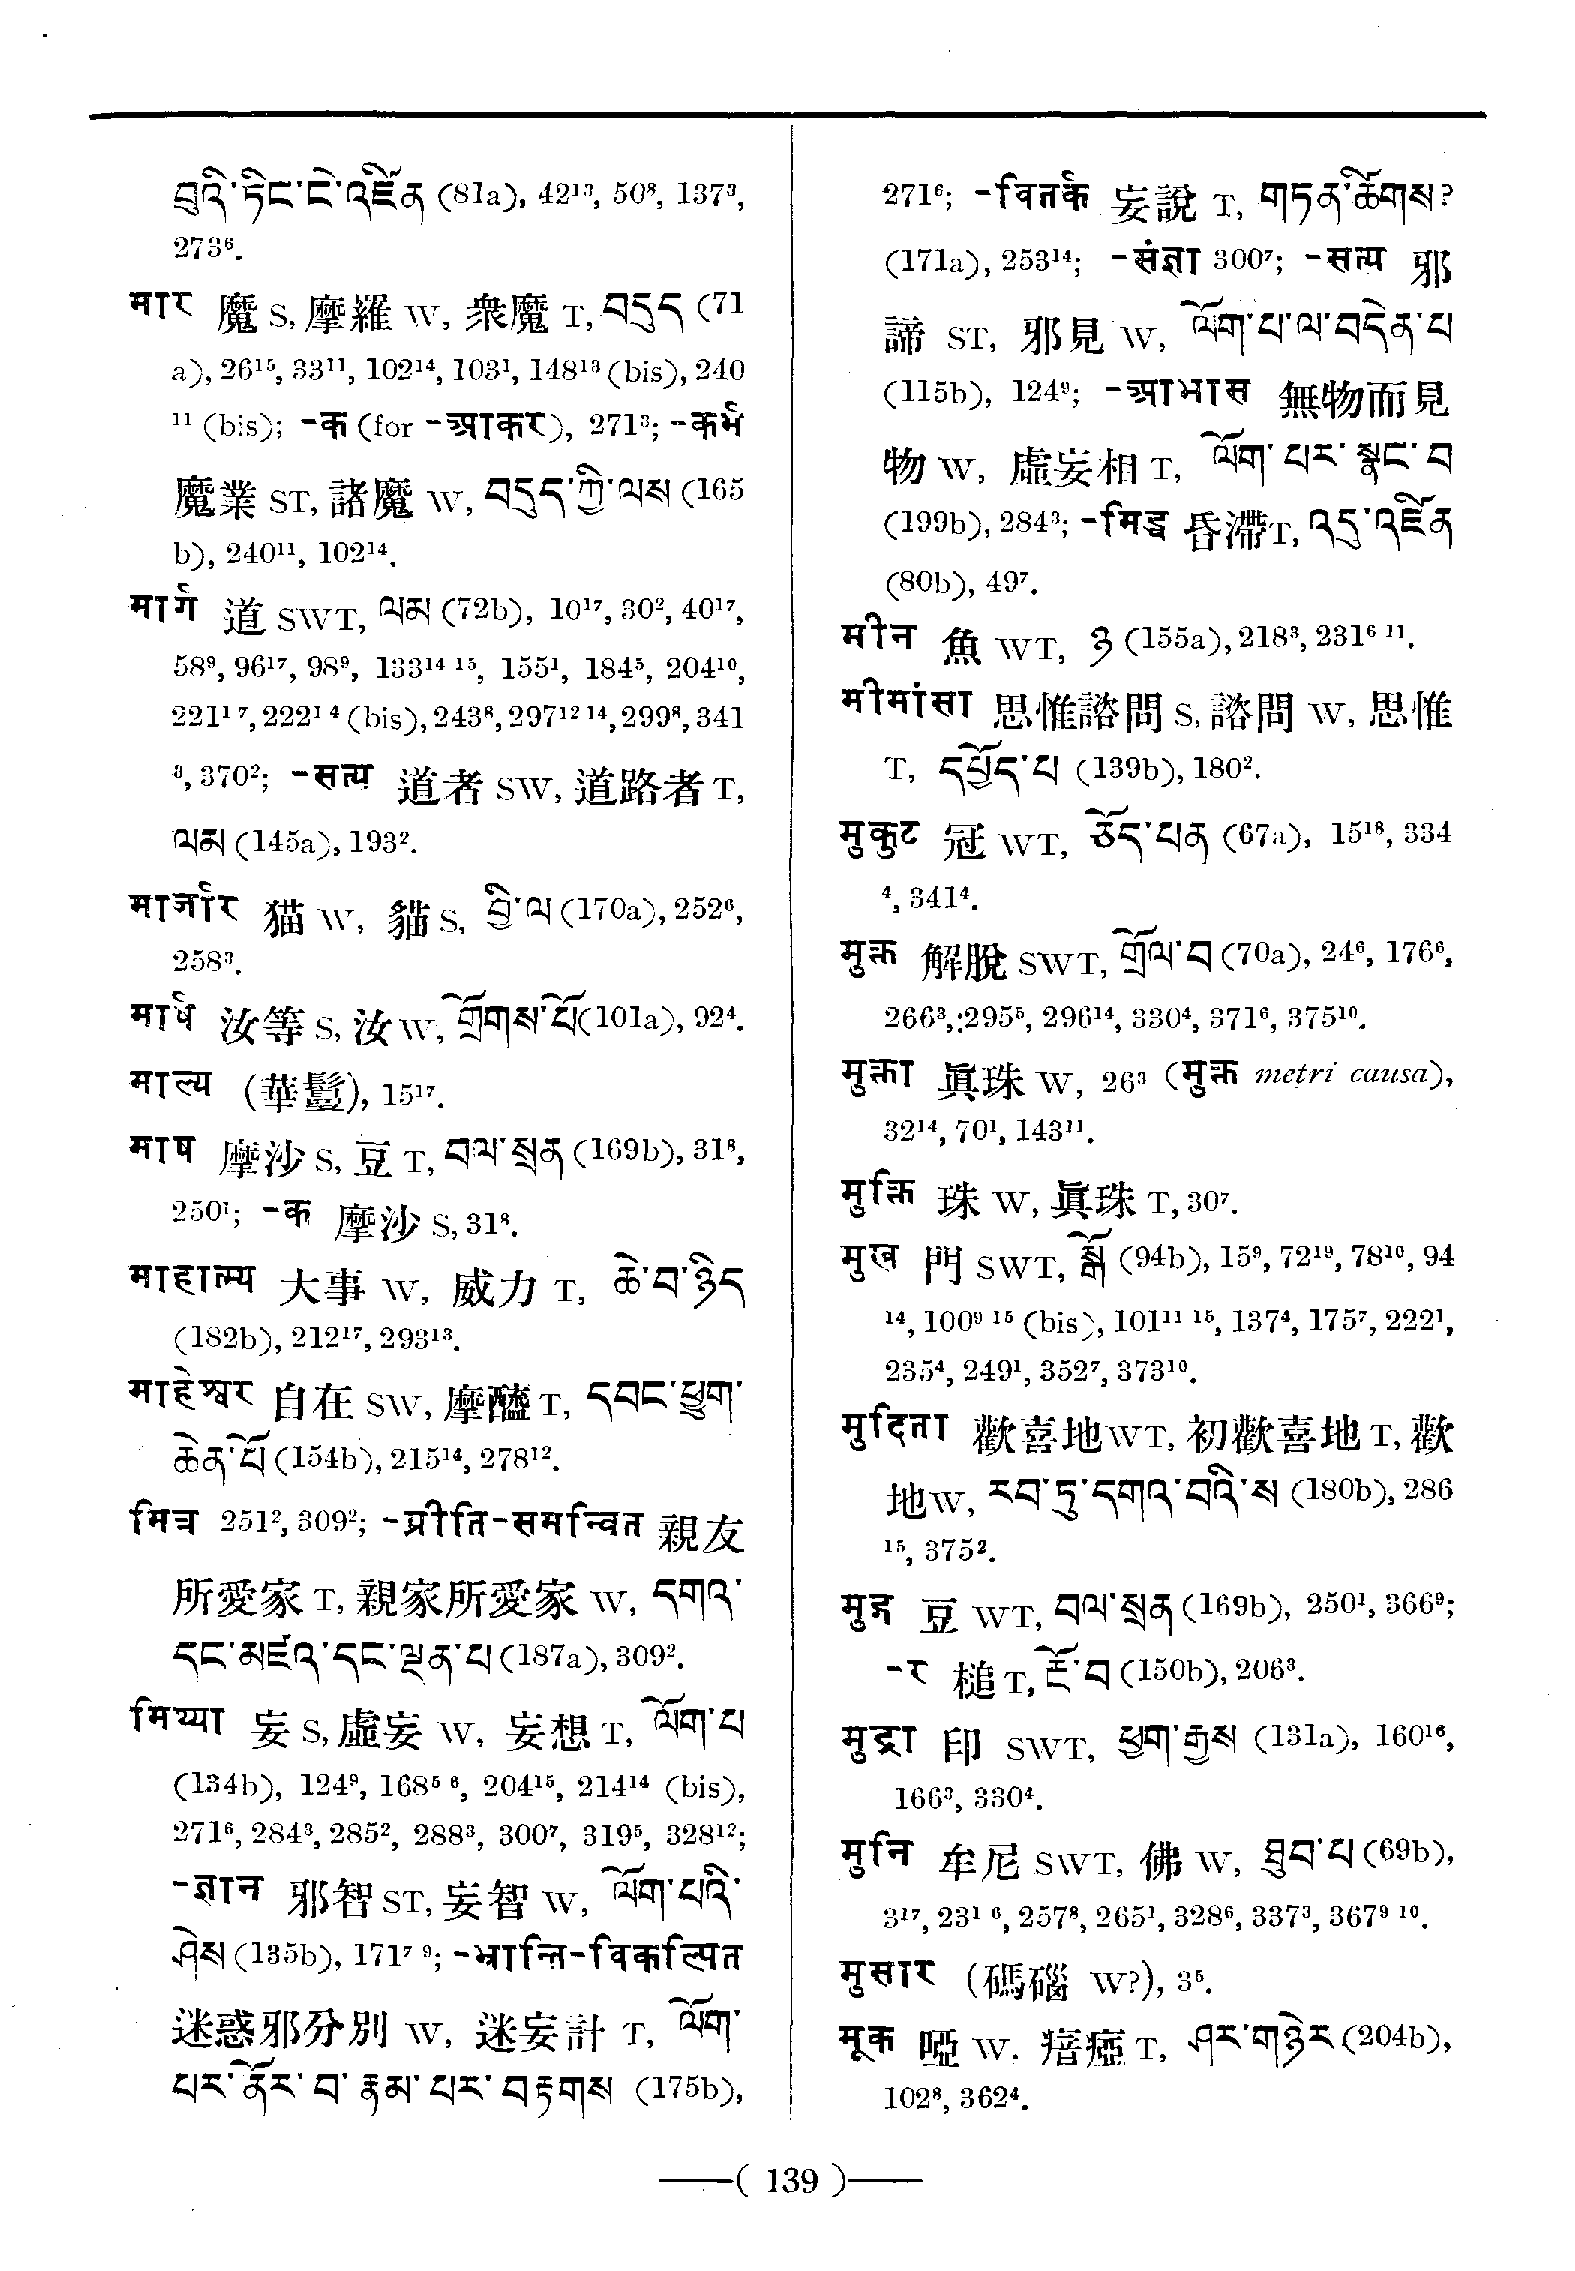 བྲུའི་ཏིང་ངེ་འཛིན (81a), 42¹³, 50⁸, 137³,
273⁶.
मार 魔 S, 摩羅 W, 衆魔 T, བདུད (71
a), 26¹⁵, 33¹¹, 102¹⁴, 103¹, 148¹³ (bis), 240
¹¹ (bis); -क (for -आकार), 271³; -कर्म
魔業 ST, 諸魔 W, བདུད་ཀྱི་ལས (165
b), 240¹¹, 102¹⁴.
मार्ग 道 SWT, ལམ (72b), 10¹⁷, 30², 40¹⁷,
58⁹, 96¹⁷, 98⁹, 133¹⁴ ¹⁵, 155¹, 184⁵, 204¹⁰,
221¹ ⁷, 222¹ ⁴ (bis), 243⁸, 297¹² ¹⁴, 299⁸, 341
³, 370²; -सत्य 道者 SW, 道路者 T,
ལམ (145a), 193².
मार्जार 猫 W, 貓 S, བྱི་ལ (170a), 252⁶,
258³.
मार्ष 汝等 S, 汝 W, གྲོགས་པོ (101a), 92⁴.
माल्य (華鬘), 15¹⁷.
माष 摩沙 S, 豆 T, བལ་སྲན (169b), 31⁸,
250¹; -क 摩沙 S, 31⁸.
माहात्म्य 大事 W, 威力 T, ཆེ་བ་ཉིད
(182b), 212¹⁷, 293¹³.
माहेश्वर 自在 SW, 摩醯 T, དབང་ཕྱུག་
ཆེན་པོ (154b), 215¹⁴, 278¹².
मित्र 251², 309²; -प्रीति-समन्वित 親友
所愛家 T, 親家所愛家 W, དགའ་
དང་མཛའ་དང་ལྡན་པ (187a), 309².
मिथ्या 妄 S, 虛妄 W, 妄想 T, ལོག་པ
(134b), 124⁹, 168⁵ ⁶, 204¹⁵, 214¹⁴ (bis),
271⁶, 284³, 285², 288³, 300⁷, 319⁵, 328¹²;
-ज्ञान 邪智 ST, 妄智 W, ལོག་པའི་
ཤེས (135b), 171⁷ ⁹; -भ्रान्ति-विकल्पित
迷惑邪分別 W, 迷妄計 T, ལོག་
པར་ནོར་བ་རྣམ་པར་བརྟགས (175b),
271⁶; -वितर्क 妄說 T, གཏན་ཚོགས?
(171a), 253¹⁴; -संज्ञा 300⁷; -सत्य 邪
諦 ST, 邪見 W, ལོག་པ་ལ་བདེན་པ
(115b), 124⁹; -आभास 無物而見
物 W, 虛妄相 T, ལོག་པར་སྣང་བ
(199b), 284³; -मिद्ध 昏滯 T, འདུ་འཛིན
(80b), 49⁷.
मीन 魚 WT, ཉ (155a), 218³, 231⁶ ¹¹.
मीमांसा 思惟諮問 S, 諮問 W, 思惟
T, དཔྱོད་པ (139b), 180².
मुकुट 冠 WT, ཅོད་པན (67a), 15¹⁸, 334
⁴, 341⁴.
मुक्त 解脫 SWT, གྲོལ་བ (70a), 24⁶, 176⁶,
266³, 295⁵, 296¹⁴, 330⁴, 371⁶, 375¹⁰.
मुक्ता 眞珠 W, 26³ (मुक्त metri causa),
32¹⁴, 70¹, 143¹¹.
मुक्ति 珠 W, 眞珠 T, 30⁷.
मुख 門 SWT, སྒོ (94b), 15⁹, 72¹⁹, 78¹⁰, 94
¹⁴, 100⁹ ¹⁵ (bis), 101¹¹ ¹⁵, 137⁴, 175⁷, 222¹,
235⁴, 249¹, 352⁷, 373¹⁰.
मुदिता 歡喜地 WT, 初歡喜地 T, 歡
地 W, རབ་ཏུ་དགའ་བའི་ས (180b), 286
¹⁵, 375².
मुद्ग 豆 WT, བལ་སྲན (169b), 250¹, 366⁹;
-र 槌 T, ཛོ་བ (150b), 206³.
मुद्रा 印 SWT, ཕྱག་རྒྱས (131a), 160¹⁶,
166³, 330⁴.
मुनि 牟尼 SWT, 佛 W, ཐུབ་པ (69b),
3¹⁷, 23¹ ⁶, 257⁸, 265¹, 328⁶, 337³, 367⁹ ¹⁰.
मुसार (碼碯 W?), 3⁵.
मूक 啞 W. 瘖瘂 T, ཤར་གཉེར (204b),
102⁸, 362⁴.
( 139 )